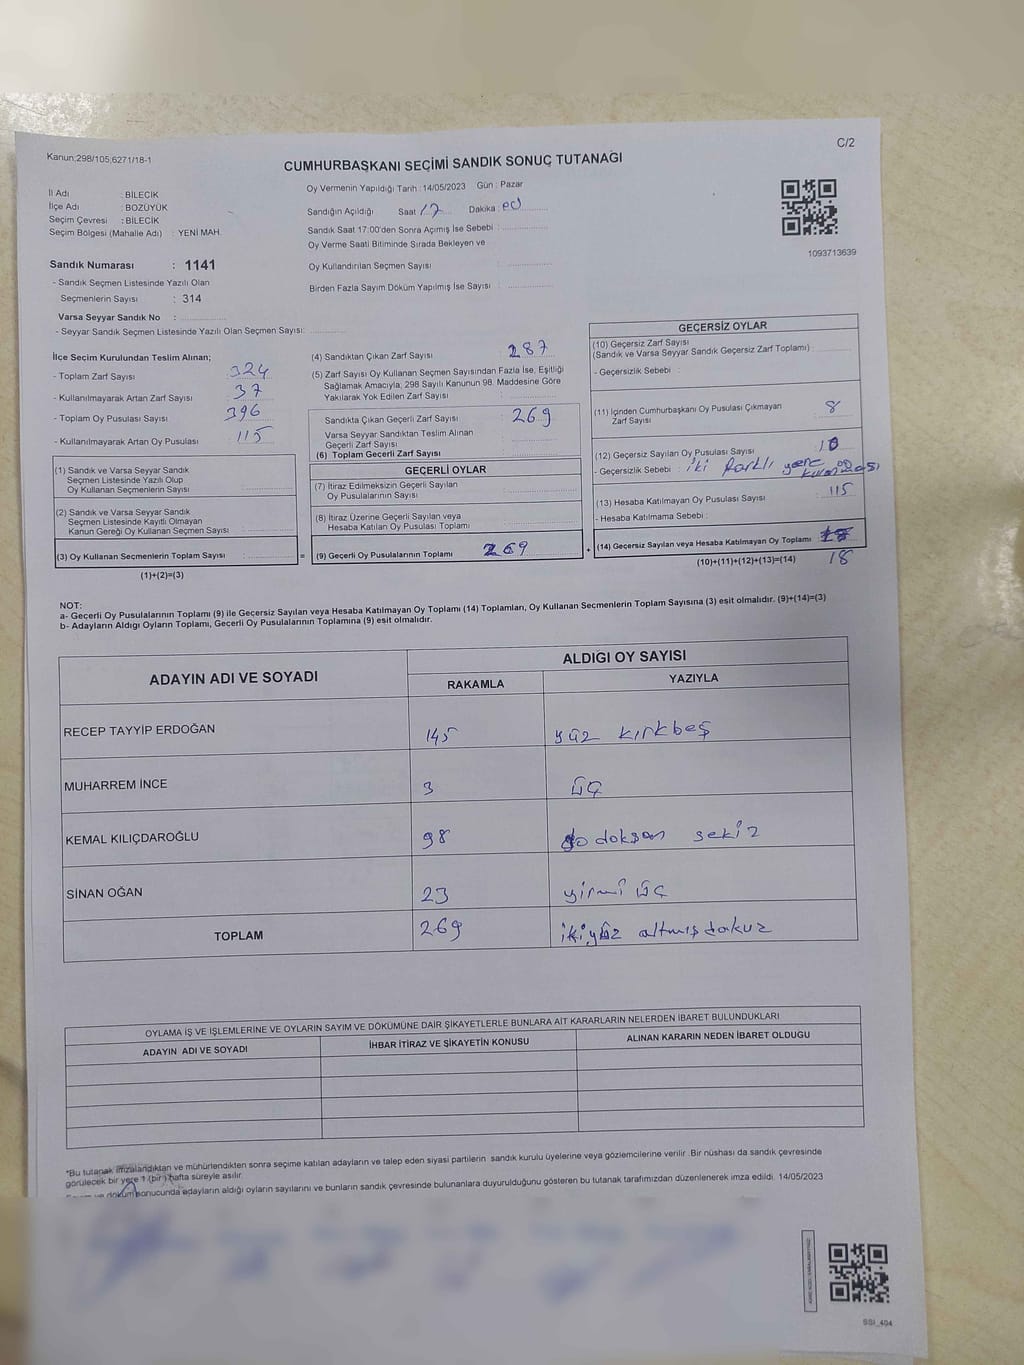 Kanun;298/105,6271/18-1
C/2
CUMHURBAŞKANI SEÇİMİ SANDIK SONUÇ TUTANAĞI
İl Adı : BİLECİK
İlçe Adı : BOZÜYÜK
Seçim Çevresi : BİLECİK
Seçim Bölgesi (Mahalle Adı) : YENİ MAH.
Sandık Numarası : 1141
- Sandık Seçmen Listesinde Yazılı Olan
Seçmenlerin Sayısı : 314
Varsa Seyyar Sandık No :
- Seyyar Sandık Seçmen Listesinde Yazılı Olan Seçmen Sayısı:
Oy Vermenin Yapıldığı Tarih : 14/05/2023 Gün : Pazar
Sandığın Açıldığı Saat 17 Dakika :
Sandık Saat 17:00'den Sonra Açımış İse Sebebi :
Oy Verme Saati Bitiminde Sırada Bekleyen ve
Oy Kullandırılan Seçmen Sayısı :
Birden Fazla Sayım Döküm Yapılmış İse Sayısı :
1093713639
İlçe Seçim Kurulundan Teslim Alınan;
- Toplam Zarf Sayısı : 324
- Kullanılmayarak Artan Zarf Sayısı : 37
- Toplam Oy Pusulası Sayısı : 396
- Kullanılmayarak Artan Oy Pusulası : 115
(1) Sandık ve Varsa Seyyar Sandık
Seçmen Listesinde Yazılı Olup
Oy Kullanan Seçmenlerin Sayısı :
(2) Sandık ve Varsa Seyyar Sandık
Seçmen Listesinde Kayıtlı Olmayan
Kanun Gereği Oy Kullanan Seçmen Sayısı :
(3) Oy Kullanan Seçmenlerin Toplam Sayısı :
(1)+(2)=(3)
=
(4) Sandıktan Çıkan Zarf Sayısı : 287
(5) Zarf Sayısı Oy Kullanan Seçmen Sayısından Fazla İse, Eşitliği
Sağlamak Amacıyla; 298 Sayılı Kanunun 98. Maddesine Göre
Yakılarak Yok Edilen Zarf Sayısı :
Sandıkta Çıkan Geçerli Zarf Sayısı : 269
Varsa Seyyar Sandıktan Teslim Alınan
Geçerli Zarf Sayısı :
(6) Toplam Geçerli Zarf Sayısı :
GEÇERLİ OYLAR
(7) İtiraz Edilmeksizin Geçerli Sayılan
Oy Pusulalarının Sayısı :
(8) İtiraz Üzerine Geçerli Sayılan veya
Hesaba Katılan Oy Pusulası Toplamı :
(9) Geçerli Oy Pusulalarının Toplamı : 269
+
GEÇERSİZ OYLAR
(10) Geçersiz Zarf Sayısı
(Sandık ve Varsa Seyyar Sandık Geçersiz Zarf Toplamı) :
- Geçersizlik Sebebi :
(11) İçinden Cumhurbaşkanı Oy Pusulası Çıkmayan
Zarf Sayısı : 8
(12) Geçersiz Sayılan Oy Pusulası Sayısı : 10
- Geçersizlik Sebebi : iki farklı yere
(13) Hesaba Katılmayan Oy Pusulası Sayısı : 115
- Hesaba Katılmama Sebebi :
(14) Geçersiz Sayılan veya Hesaba Katılmayan Oy Toplamı :
18
(10)+(11)+(12)+(13)=(14)
NOT:
a- Geçerli Oy Pusulalarının Toplamı (9) ile Geçersiz Sayılan veya Hesaba Katılmayan Oy Toplamı (14) Toplamları, Oy Kullanan Seçmenlerin Toplam Sayısına (3) eşit olmalıdır. (9)+(14)=(3)
b- Adayların Aldığı Oyların Toplamı, Geçerli Oy Pusulalarının Toplamına (9) eşit olmalıdır.
ADAYIN ADI VE SOYADI
ALDIĞI OY SAYISI
RAKAMLA YAZIYLA
RECEP TAYYİP ERDOĞAN 145 yüz kırkbeş
MUHARREM İNCE 3 üç
KEMAL KILIÇDAROĞLU 98 doksan sekiz
SİNAN OĞAN 23 yirmi üç
TOPLAM 269 ikiyüz altmış dokuz
OYLAMA İŞ VE İŞLEMLERİNE VE OYLARIN SAYIM VE DÖKÜMÜNE DAİR ŞİKAYETLERLE BUNLARA AİT KARARLARIN NELERDEN İBARET BULUNDUKLARI
ADAYIN ADI VE SOYADI İHBAR İTİRAZ VE ŞİKAYETİN KONUSU ALINAN KARARIN NEDEN İBARET OLDUĞU
*Bu tutanak imzalandıktan ve mühürlendikten sonra seçime katılan adayların ve talep eden siyasi partilerin sandık kurulu üyelerine veya gözlemcilerine verilir .Bir nüshası da sandık çevresinde
görülecek bir yere 1 (bir) hafta süreyle asılır.
ve döküm sonucunda adayların aldığı oyların sayılarını ve bunların sandık çevresinde bulunanlara duyurulduğunu gösteren bu tutanak tarafımızdan düzenlenerek imza edildi. 14/05/2023
SSI_404